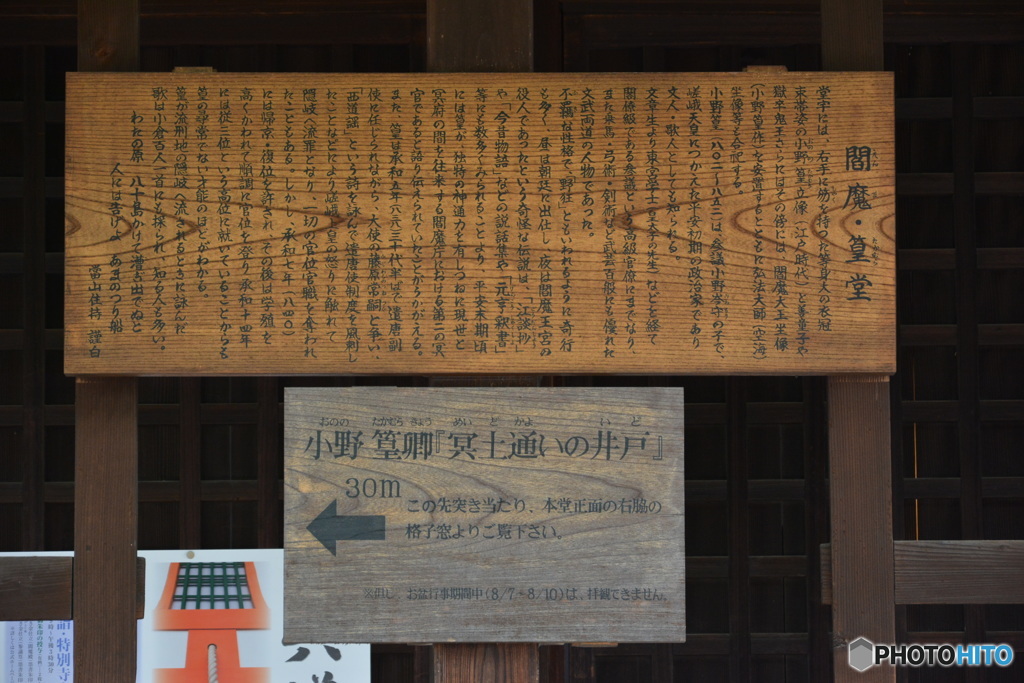 閻魔・篁堂
えんま たかむら
堂宇には、右手に笏を持った等身大の衣冠
束帯姿の小野篁立像（江戸時代）と善童子や
獄卒鬼王さらにはその傍には、閻魔大王坐像
（小野篁作）を安置するとともに弘法大師（空海）
坐像等も合祀する。
小野篁（八〇一〜八五二）は参議小野岑守の子で、
嵯峨天皇につかえた平安初期の政治家であり
文人・歌人としても知られる。
文章生より東宮学士（皇太子の先生）などを経て
閣僚級である参議という高級官原にまでなり、
また乗馬・弓術・剣術など武芸百般にも優れた
文武両道の人物であった。
不羈な性格で「野狂」ともいわれるように奇行
も多く、昼は朝廷に出仕し、夜は閻魔王宮の
役人であったという奇怪な伝説は、「江談抄」
や「今昔物語」などの説話集や「元亨釈書」
等にも数多くみられることより、平安末期頃
には篁が、独特の神通力を有しつねに現世と
冥府の間を往来する閻魔庁における第二の冥
官であると語り伝えられていたことがうかがえる。
また、篁は承和五年（八三八）三十代半ばで、遣唐副
使に任じられながら、大使の藤原常嗣と争い、
「西道謡」という詩を詠んで遣唐使制度を風刺し
たことなどにより嵯峨上皇の怒りに触れて
隠岐へ流罪となり、一切の官位官職を奪われ
たこともある。しかし、承和七年（八四〇）
には帰京・復位を許され、その後は学殖を
高くかわれて順調に官位を登り承和十四年
には従三位という高位に就いていることからも
篁の尋常でない才能のほどがわかる。
篁が流刑地の隠岐へ流されるときに詠んだ
歌は小倉百人一首にも採られ、知る人も多い。
わたの原 八十島かけて 漕ぎ出でぬと
人には告げよ あまのつり船
當山住持 謹白
おのの たかむら きょう めい ど かよ い ど
小野 篁卿『冥土通いの井戸』
30m
この先突き当たり、本堂正面の右脇の
格子窓よりご覧下さい。
※但し、お盆行事期間中(8/7〜8/10)は、拝観できません。
詣・特別寺
PHOTOHITO